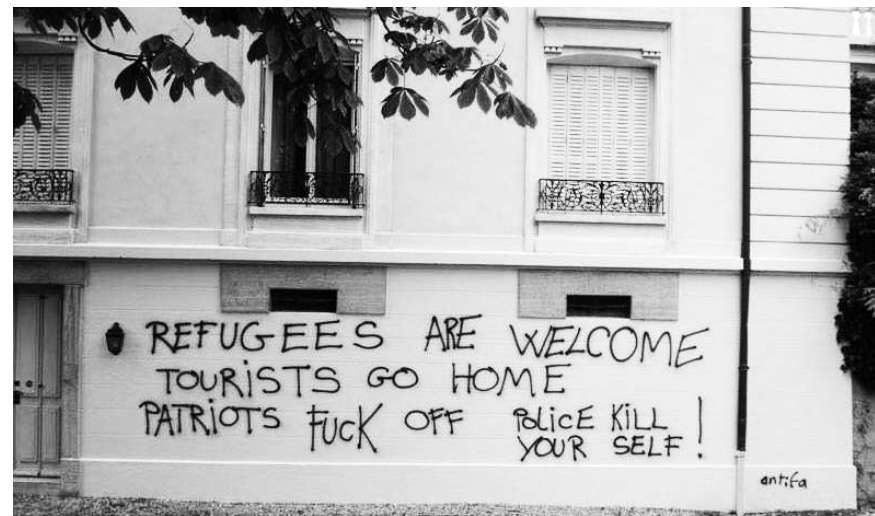 REFUGEES ARE WELCOME
TOURISTS GO HOME
PATRIOTS FUCK OFF POLICE KILL
YOUR SELF !
antifa